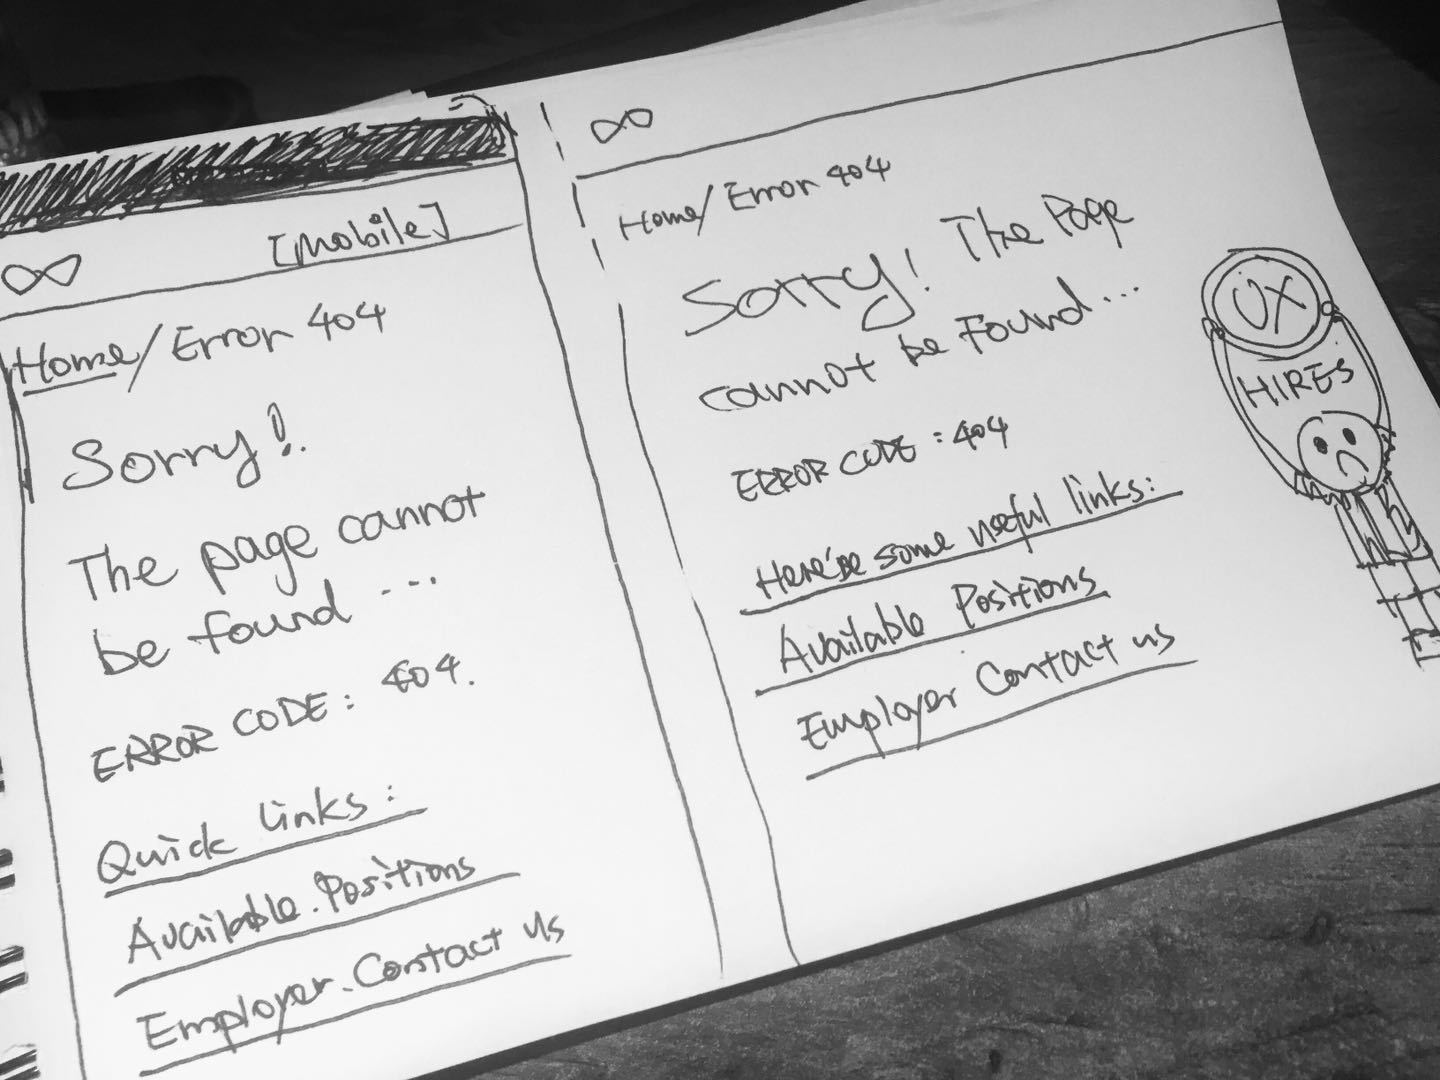 [Mobile]
Home/Error 404
Sorry!
The page cannot
be found ...
ERROR CODE: 404.
Quick links:
Available.Positions
Employer.Contact us
Home/Error 404
Sorry! The Page
cannot be Found...
ERROR CODE: 404
Here're some useful links:
Available Positions
Employer Contact us
UX
HIRES